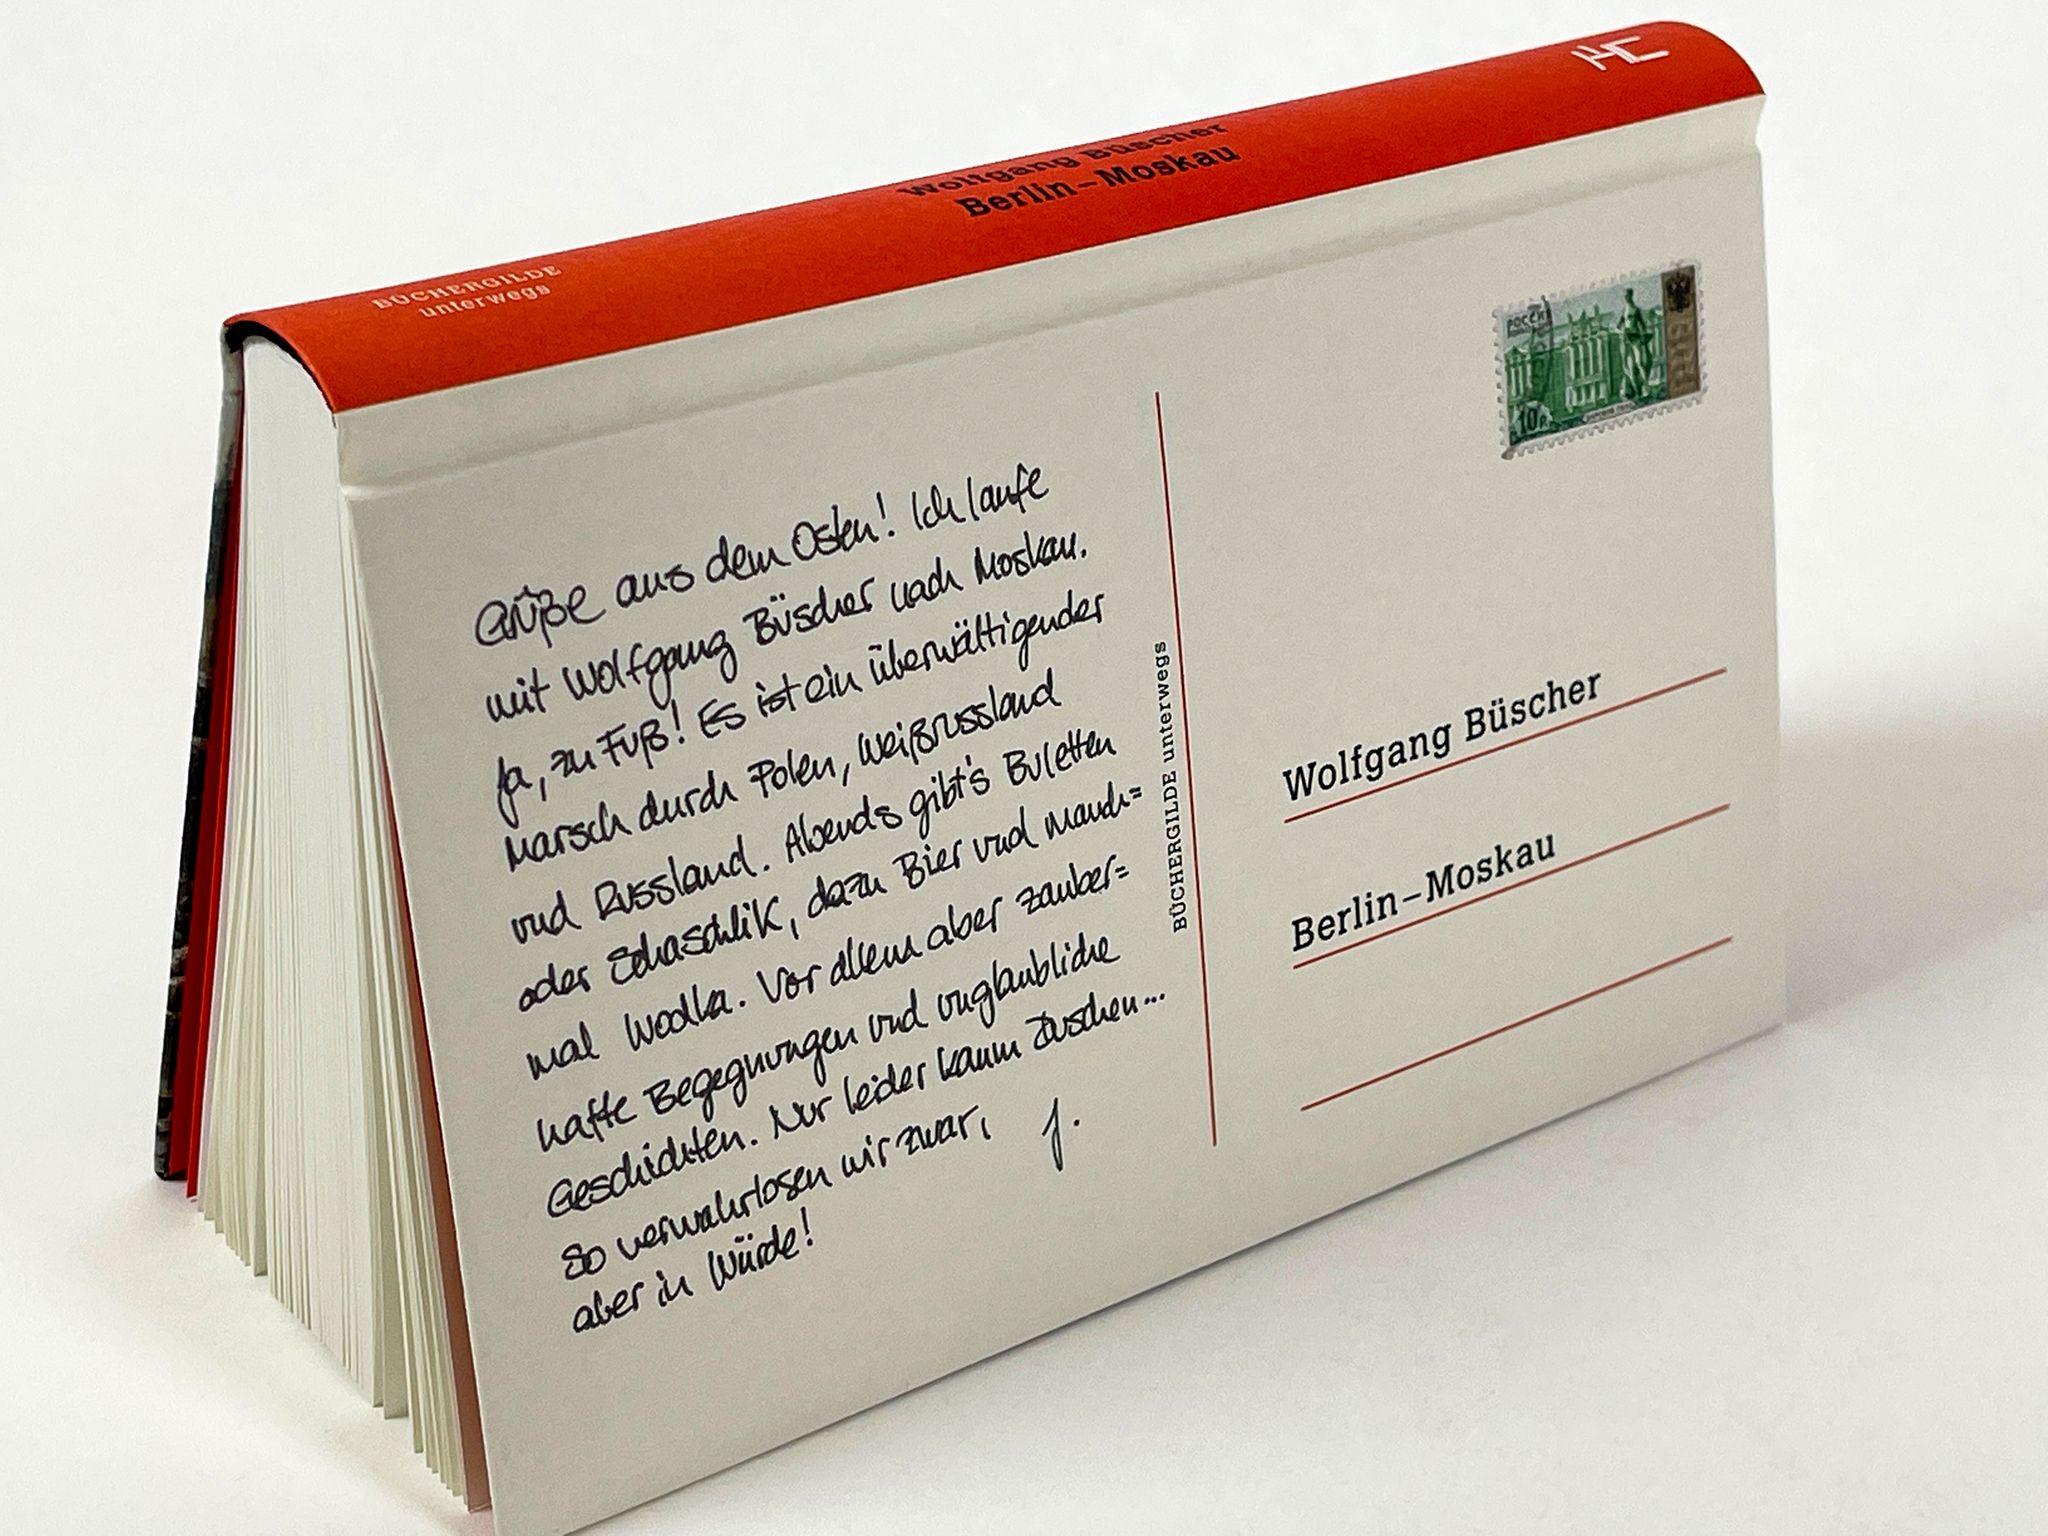 BÜCHERGILDE
unterwegs
Wolfgang Büscher
Berlin–Moskau
Grüße aus dem Osten! Ich laufe
mit Wolfgang Büscher nach Moskau.
Ja, zu Fuß! Es ist ein überwältigender
Marsch durch Polen, Weißrussland
und Russland. Abends gibt's Buletten
oder Schaschlik, dazu Bier und manch=
mal Wodka. Vor allem aber zauber=
hafte Begegnungen und unglaubliche
Geschichten. Nur leider kaum Duschen...
So verwahrlosen wir zwar,
aber in Würde!
J.
BÜCHERGILDE unterwegs
10р
Wolfgang Büscher
Berlin–Moskau